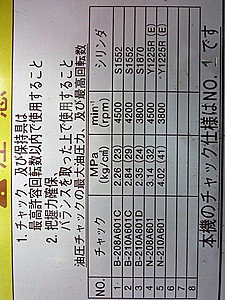 注意
1. チャック、及び保持具は
最高許容回転数以内で使用すること
2. 把握力確保、
バランスを取った上で使用すること
油圧チャックの最大油圧力、及び最高回転数
NO. チャック MPa (kg/cm²) min⁻¹ (rpm) シリンダ
1 B-208A601C 2.26 (23) 4500 S1552
2 B-210A601C 2.84 (29) 4200 S1552
3 B-210A801D 2.35 (24) 3800 S1870
4 N-208A601 3.14 (32) 4500 Y1225R (E)
5 N-210A601 4.02 (41) 3800 Y1225R (E)
6
7
8
本機のチャック仕様はNO. 1 です